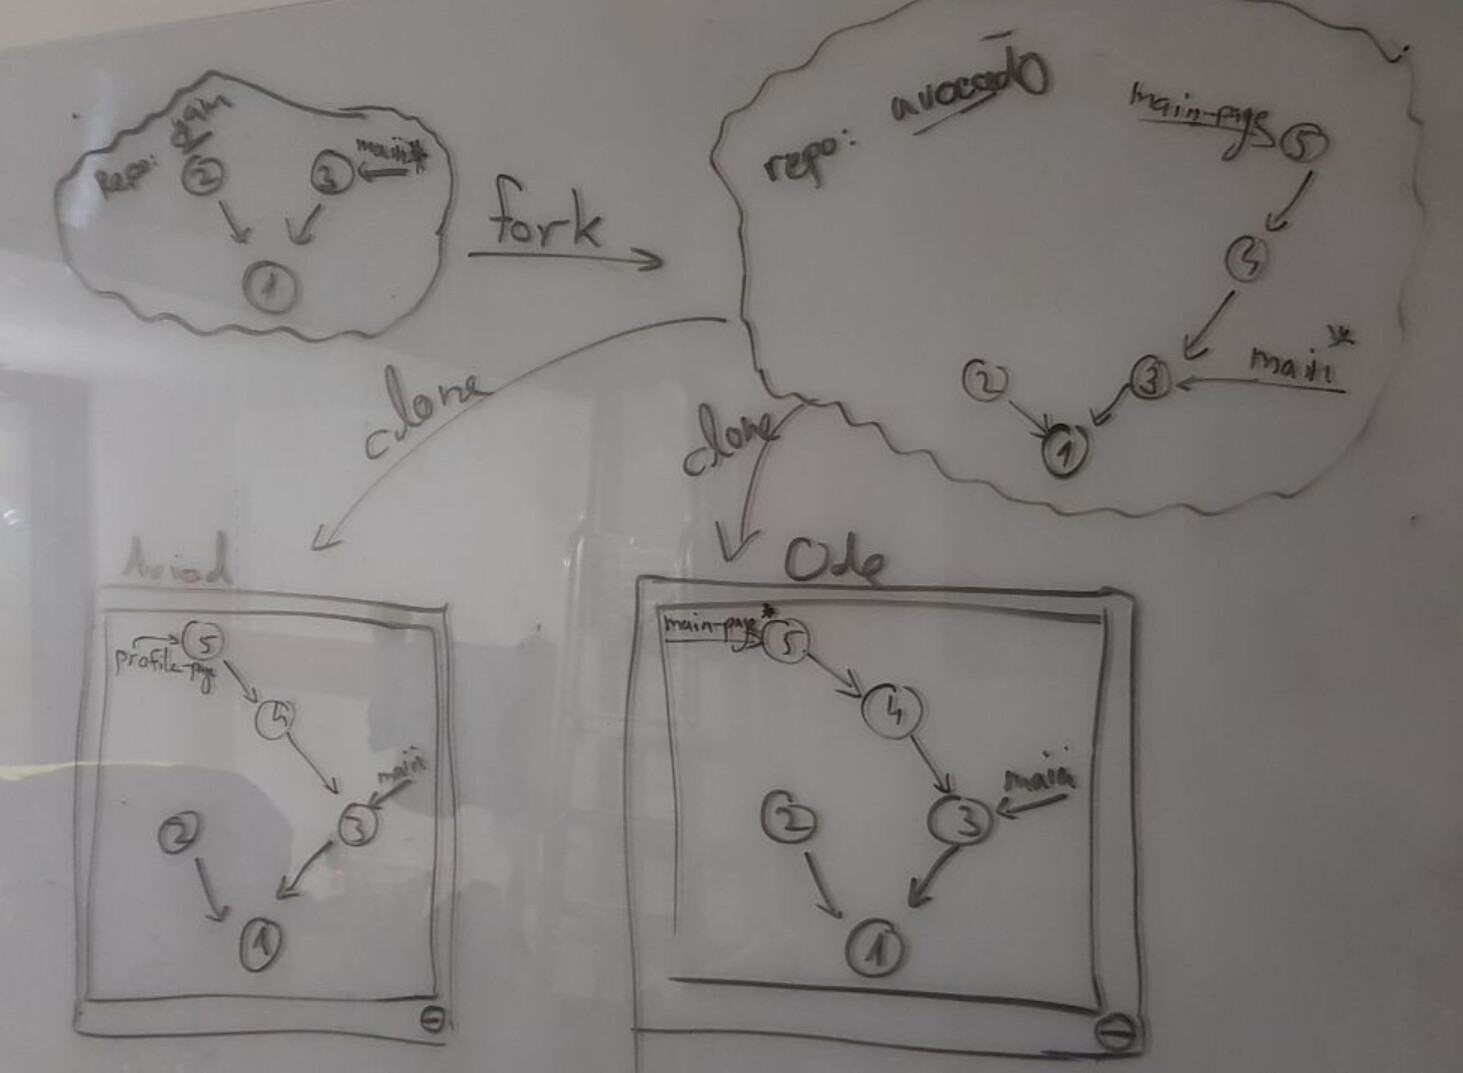 repo: yam
2
3
main*
1
fork
repo: avocado
main-page
5
4
3
main*
2
1
clone
clone
5
profile-page
4
main
3
2
1
Ode
main-page*
5
4
main
3
2
1